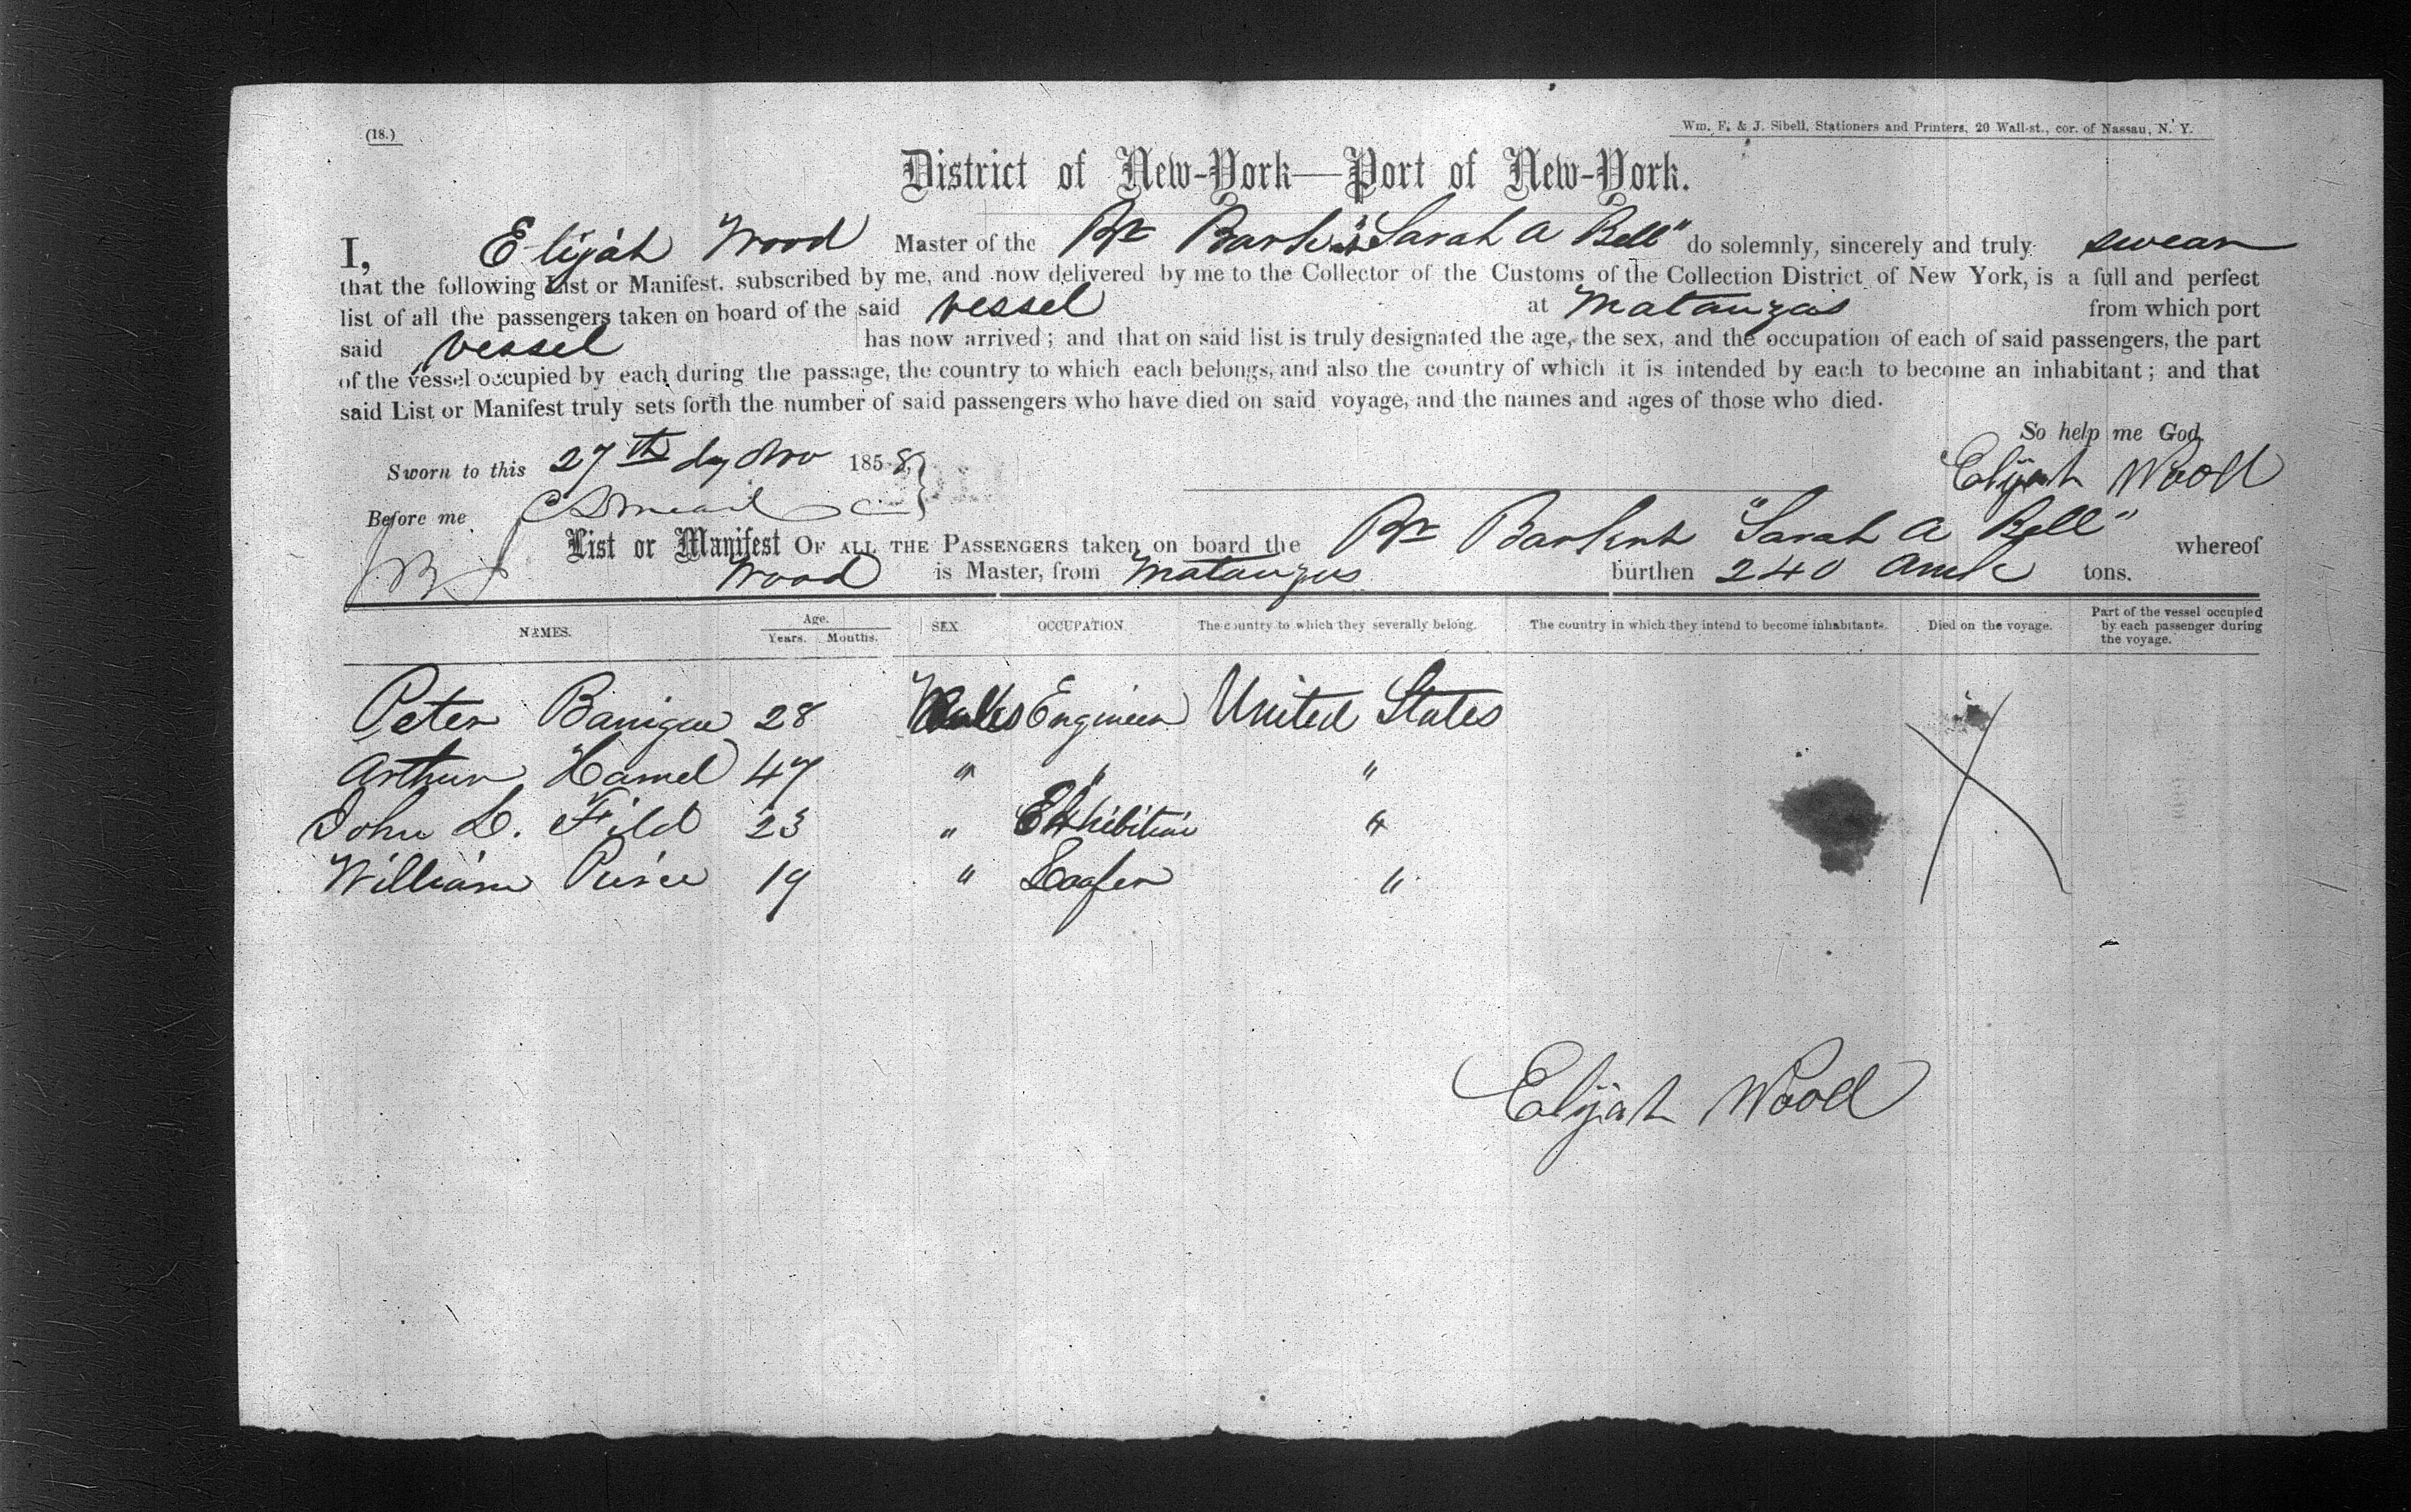 (18.)
Wm. F. & J. Sibell, Stationers and Printers, 20 Wall-st., cor. of Nassau, N. Y.
District of New-York—Port of New-York.
I, Elijah Wood Master of the Br "Sarah A Bell" do solemnly, sincerely and truly swear
that the following List or Manifest, subscribed by me, and now delivered by me to the Collector of the Customs of the Collection District of New York, is a full and perfect
list of all the passengers taken on board of the said vessel at Matanzas from which port
said vessel has now arrived; and that on said list is truly designated the age, the sex, and the occupation of each of said passengers, the part
of the vessel occupied by each during the passage, the country to which each belongs, and also the country of which it is intended by each to become an inhabitant; and that
said List or Manifest truly sets forth the number of said passengers who have died on said voyage, and the names and ages of those who died.
So help me God.
Sworn to this 27th day Nov 1858, Elijah Wood
Before me
List or Manifest OF ALL THE PASSENGERS taken on board the Br "Sarah A Bell" whereof
Wood is Master, from Matanzas burthen 240 tons.
NAMES. Age. Years. Months. SEX OCCUPATION The country to which they severally belong. The country in which they intend to become inhabitants. Died on the voyage. Part of the vessel occupied by each passenger during the voyage.
Peter 28 Males Engineer United States
Arthur Hamel 47 " " "
John L. Fild 23 " Exhibition "
William Peirce 19 " Loafer "
Elijah Wood